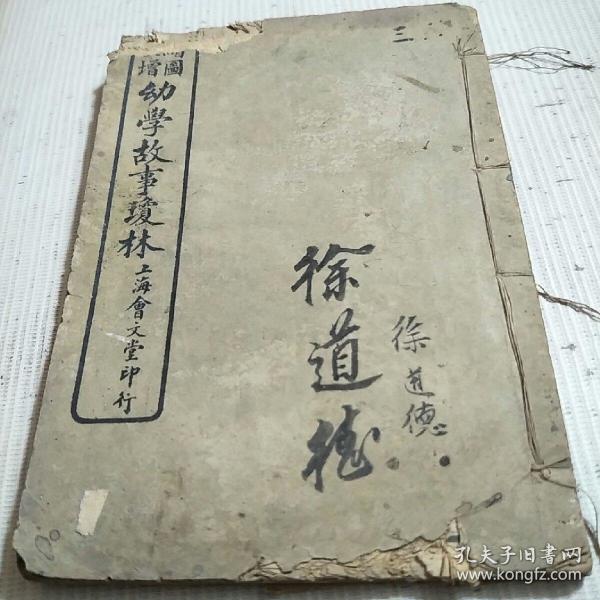 三
圖
增
幼學故事瓊林
上海會文堂印行
徐道德
徐道德
孔夫子旧书网
www.kongfz.com